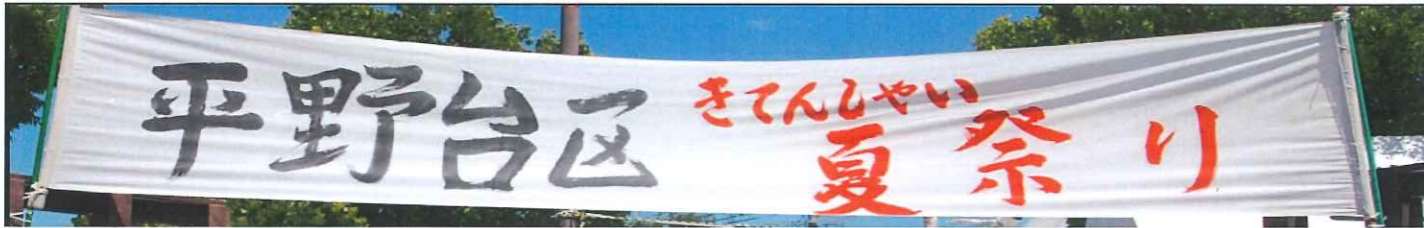 平野台区
きてんしゃい
夏祭り